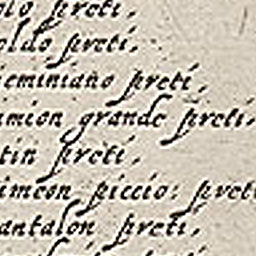 olo preti,
oldo preti,
eminiano preti,
imion grande preti,
tin preti,
imeon piccio: preti
antalon preti,